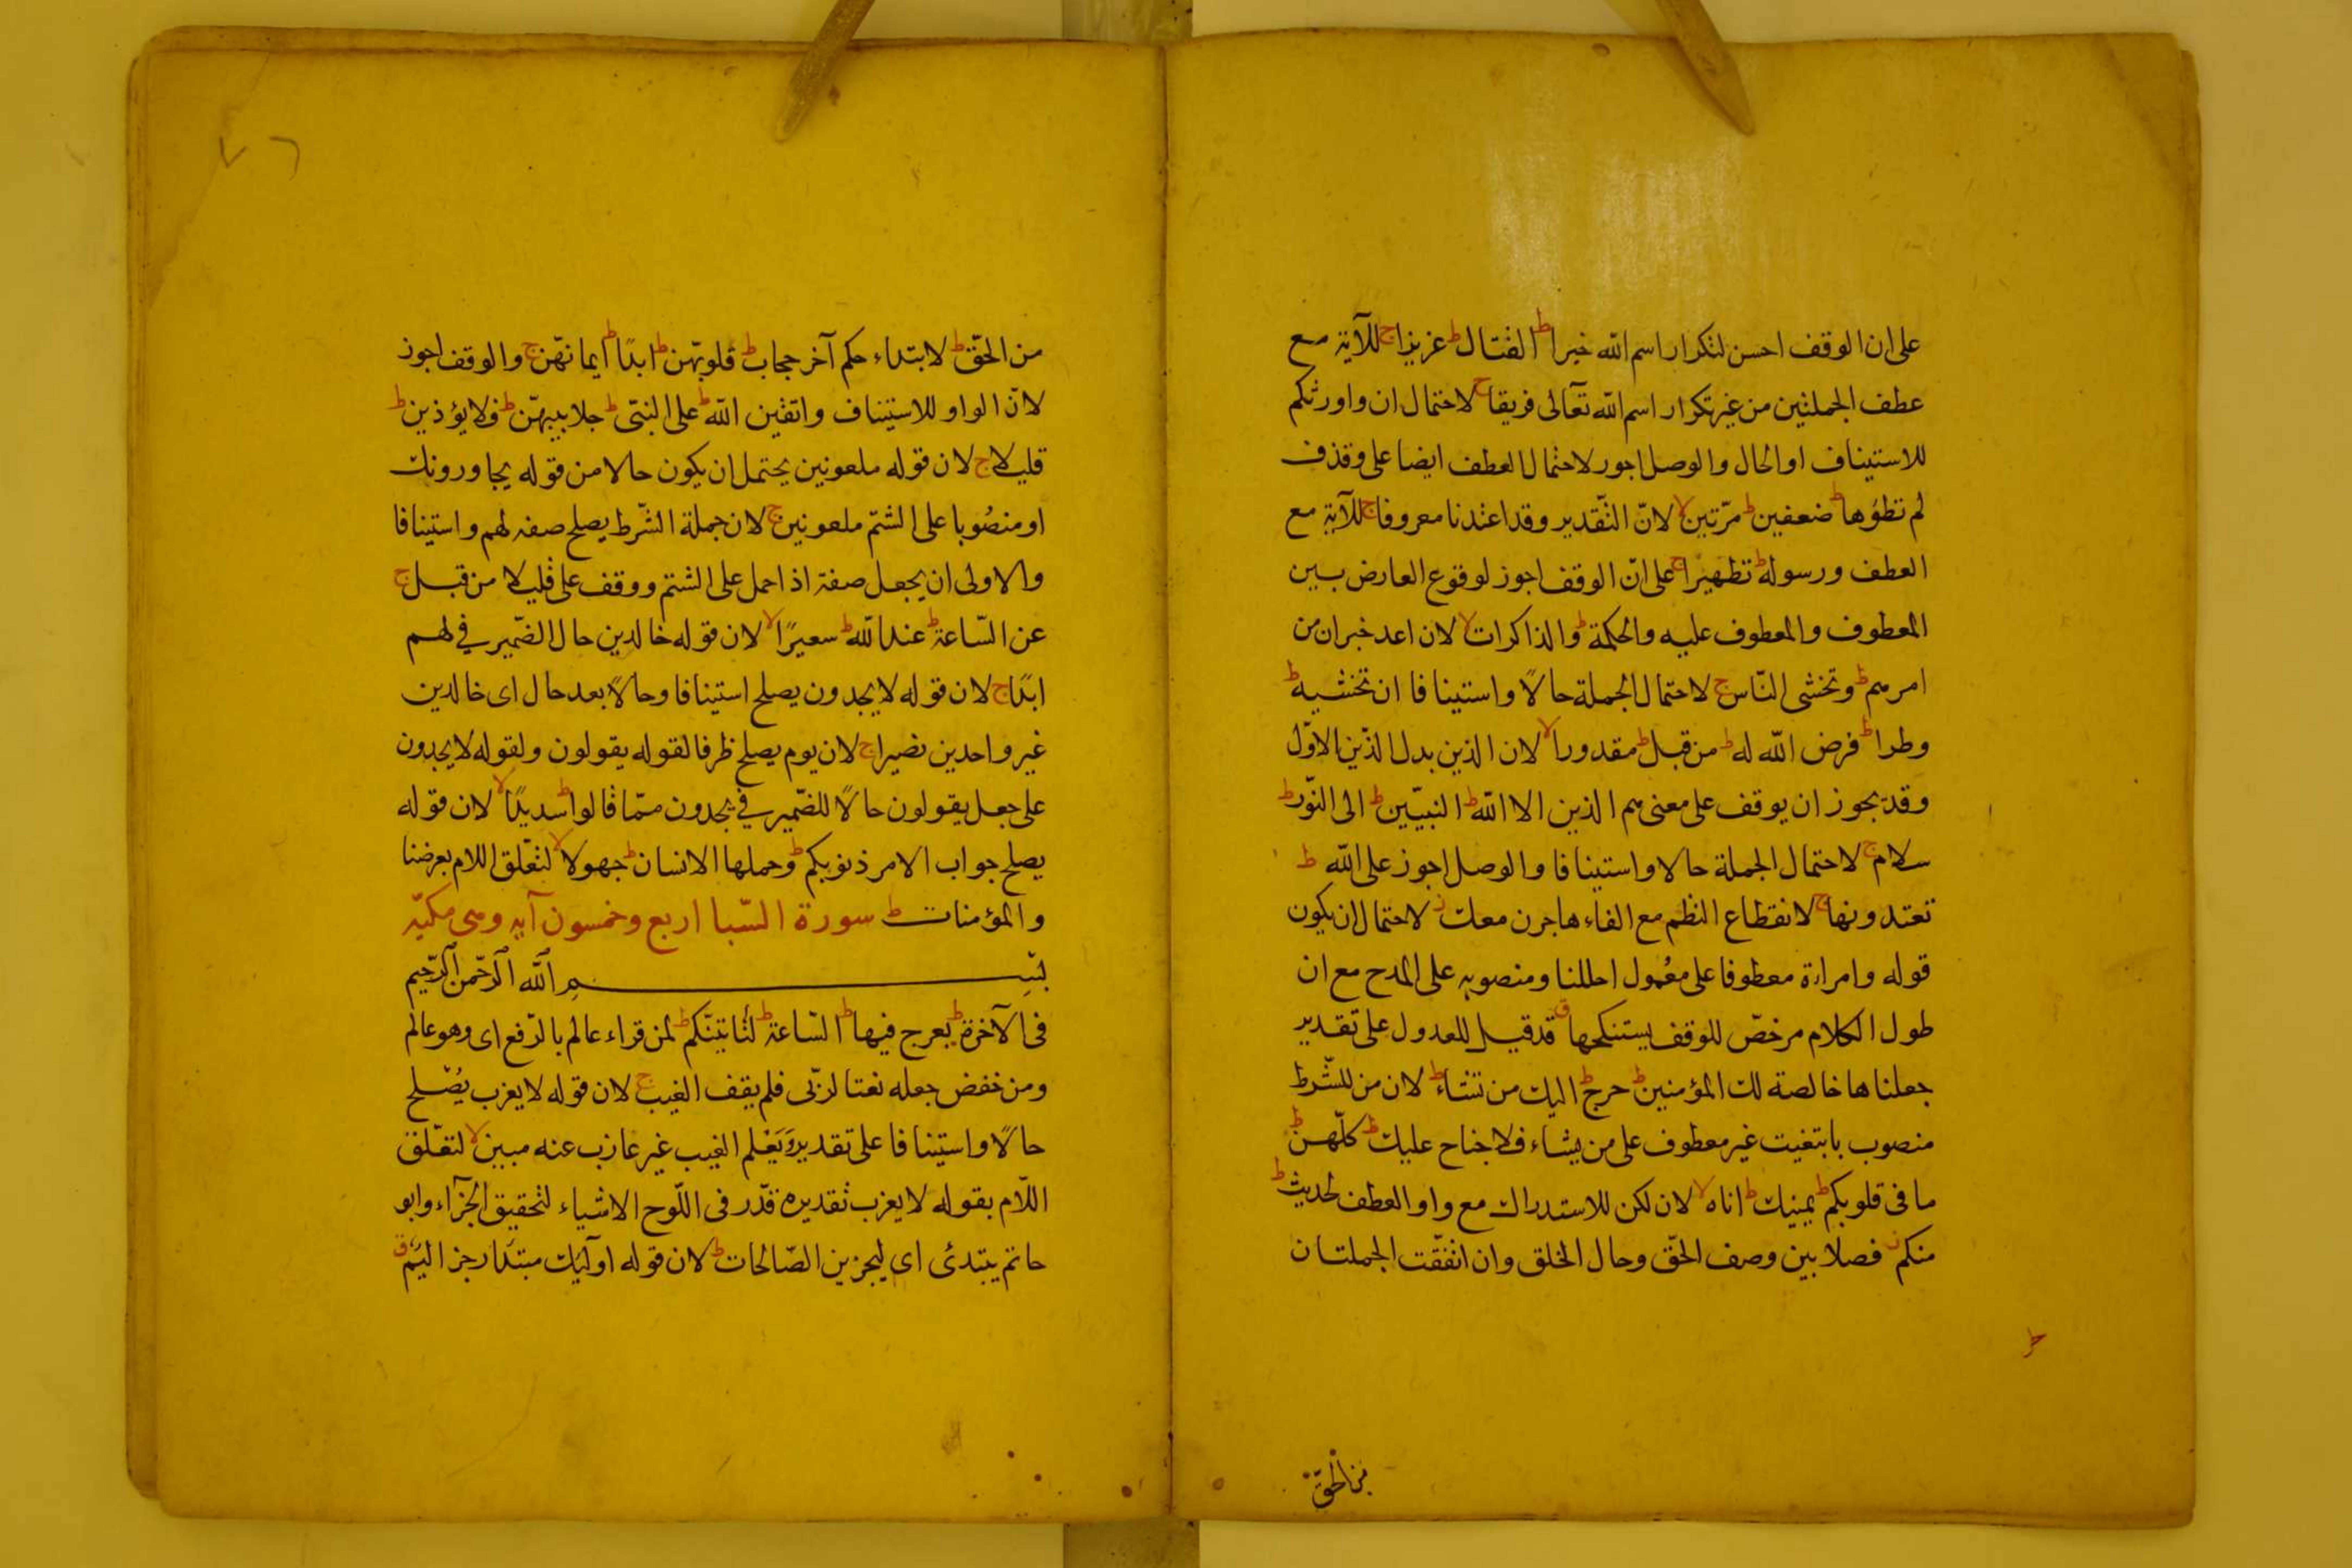 على ان الوقف احسن لتكرار اسم الله خيرا ط القتال ط عزيزا ج للآية مع
عطف الجملتين من غير تكرار اسم الله تعالى فريقا ج لاحتمال ان واورثكم
للاستيناف او الحال والوصل اجوز لاحتمال العطف ايضا على وقذف
لم تطؤها ط ضعفين ط مرّتين لا لانّ التّقدير وقد اعتدنا معروفا ج للآية مع
العطف ورسوله ط تطهيرا ج على انّ الوقف اجوز لوقوع العارض بين
المعطوف والمعطوف عليه والحكمة ط والذاكرات لا لان اعد خبر ان من
امرهم ط وتخشى النّاس ج لاحتمال الجملة حالًا واستينافا ان تخشيه ط
وطرا ط فرض الله له ط من قبل ط مقدورا لا لان الذين بدل الذّين الاوّل
وقد يجوز ان يوقف على معنى هم الذين الا الله ط النبيّين ط الى النّور ط
سلام ج لاحتمال الجملة حالا واستينافا والوصل اجوز على الله ط
تعتدونها ج لانقطاع النظم مع الفاء هاجرن معك ز لاحتمال ان يكون
قوله وامراءة معطوفا على معُمول احللنا ومنصوبه على المدح مع ان
طول الكلام مرخصّ للوقف يستنكحها ق قد قيل للعدول على تقدير
جعلناها خالصة لك المؤمنين ط حرج ط اليك من تشاء ط لان من للشّرط
منصوب بابتغيت غير معطوف على من يشاء فلا جناح عليك ط كلّهن ط
ما فى قلوبكم ط يمينك ط اناه لا لان لكن للاستدراك مع واو العطف لحديث ط
منكم ز فصلا بين وصف الحقّ وحال الخلق وان اتفقّت الجملتان
من الحقّ
من الحقّ ط لابتداء حكم آخر حجاب ط قلوبهّن ط ابدًا ط ايمانهّن ج والوقف اجوز
لانّ الواو للاستيناف واتقين الله ط على النبىّ ط جلابيبهّن ط فلا يؤذين ط
قليلا ج لان قوله ملعونين يحتمل ان يكون حالا من قوله يجاورونك
او منصُوبا على الشتم ملعونين ج لان جملة الشّرط يصلح صفه لهم واستينافا
والاولى ان يجعل صفة اذا حمل على الشتم ووقف على قليلا من قبل ج
عن السّاعة ط عند الله ط سعيرًا لا لان قوله خالدين حال الضّمير في لهم
ابدًا ج لان قوله لا يجدون يصلح استينافا وحالًا بعد حال اى خالدين
غير واحدين نصيرا ج لان يوم يصلح ظرفا لقوله يقولون ولقوله لا يجدون
على جعل يقولون حالًا للضّمير في يجدون ممّا قالوا ط سديدًا لا لان قوله
يصلح جواب الامر ذنوبكم ط وحملها الانسان ط جهولا لا لتعّلق اللام بعرضنا
والمؤمنات ط سورة السّبا اربع وخمسون آيه وهى مكيّه
بسّم الله الرّحمن الرّحيم
فى الآخرة ط يعرج فيها ط السّاعة ط لتأتينّكم ط لمن قراء عالم بالرّفع اى وهو عالم
ومن خفض جعله نعتا لربّى فلم يقف الغيب ج لان قوله لا يعزب يصُلح
حالًا واستينافا على تقدير وَيَعْلم الغيب غير عازب عنه مبين لا لتعّلق
اللّام بقوله لا يعزب تقديره قدّر فى اللّوح الاشياء لتحقيق الجزآء وابو
حاتم يبتدئ اى ليجزين الصّالحات ط لان قوله اوليك مبتدا رجز اليم ق